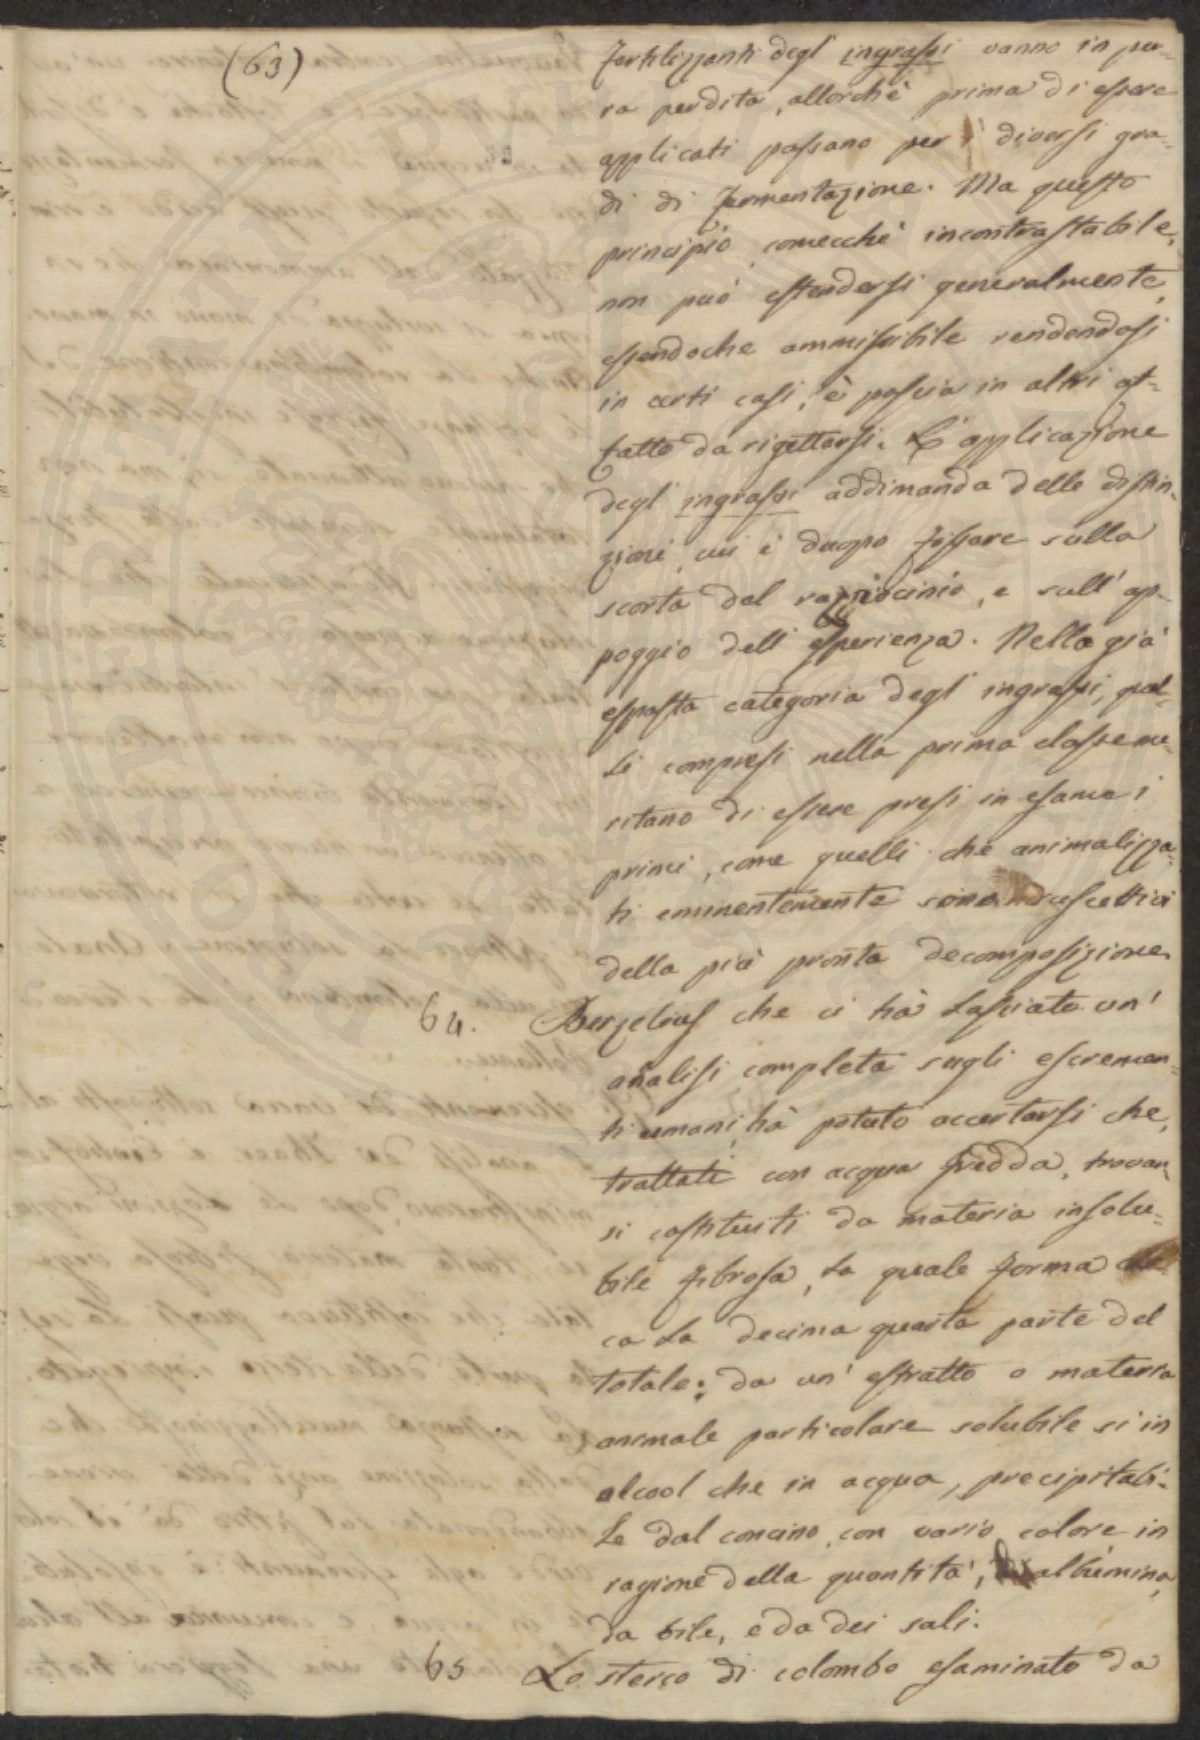 (63)
fertilizzanti degl' ingrassi vanno in pu-
ra perdita, allorchè prima di essere
applicati passano per i diversi gra-
di di fermentazione. Ma questo
principio comecchè incontrastabile,
non può estendersi generalmente,
essendoche ammissibile rendendosi
in certi casi, è poscia in altri af-
fatto da rigettarsi. L'applicazione
degl' ingrassi addimanda delle distin-
zioni, cui è duopo fissare sulla
scorta del raziocinio, e sull' ap-
poggio dell' esperienza. Nella già
esposta categoria degl' ingrassi, quel-
li compresi nella prima classe me-
ritano di essere presi in esame i
primi, come quelli che animalizza-
ti eminentemente sono suscettivi
della più pronta decomposizione.
64. Berzelius che ci hà lasciato un'
analisi completa sugli escremen-
ti umani, hà potuto accertarsi che,
trattati con acqua fredda, trovan-
si costituiti da materia insolu-
bile fibrosa, la quale forma cir-
ca la decima quarta parte del
totale: da un' estratto o materia
animale particolare solubile sì in
alcool che in acqua, precipitabi-
le dal concino, con vario colore in
ragione della quantità, di albumina,
da bile, e da dei sali.
65 Lo sterco di colombo esaminato da